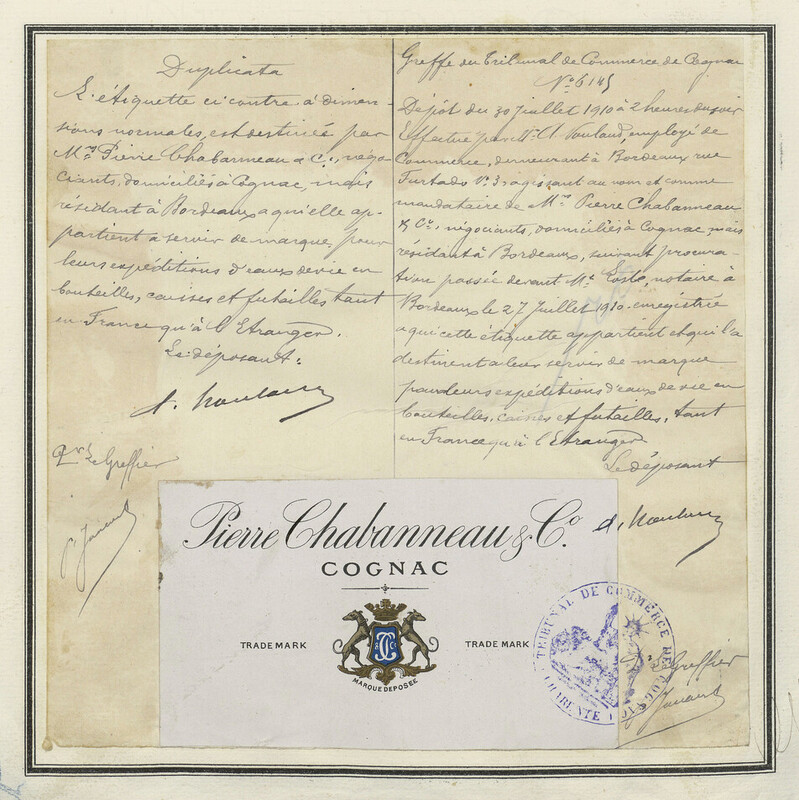 Duplicata
L'étiquette ci contre à dimen-
sions normales, est destinée par
M.rs Pierre Chabanneau & C.o, négo-
ciants, domiciliés à Cognac, mais
résidant à Bordeaux a qui elle ap-
partient a servir de marque pour
leurs expéditions d'eaux de vie en
bouteilles, caisses et futailles, tant
en France qu'à l'Etranger.
Le déposant.
P.r Le Greffier
Greffe du Tribunal de Commerce de Cognac
N.o 6145
Dépôt du 30 Juillet 1910 à 2 heures du soir
Effectué par M. A. employé de
Commerce, demeurant à Bordeaux rue
Furtado N.o 3 agissant au nom et comme
mandataire de M.rs Pierre Chabanneau
& C.o, négociants, domiciliés à Cognac mais
résidant à Bordeaux, suivant procura-
tion passée devant M.e notaire à
Bordeaux le 27 Juillet 1910 enregistrée
a qui cette étiquette appartient et qui l'a
destinent a leur servir de marque
pour leurs expéditions d'eaux de vie en
bouteilles, caisses et futailles, tant
en France qu'à l'Etranger
Le déposant
Pierre Chabanneau & Co.
COGNAC
TRADE MARK
TRADE MARK
MARQUE DEPOSÉE
TRIBUNAL DE COMMERCE DE COGNAC
CHARENTE
P.r Le Greffier